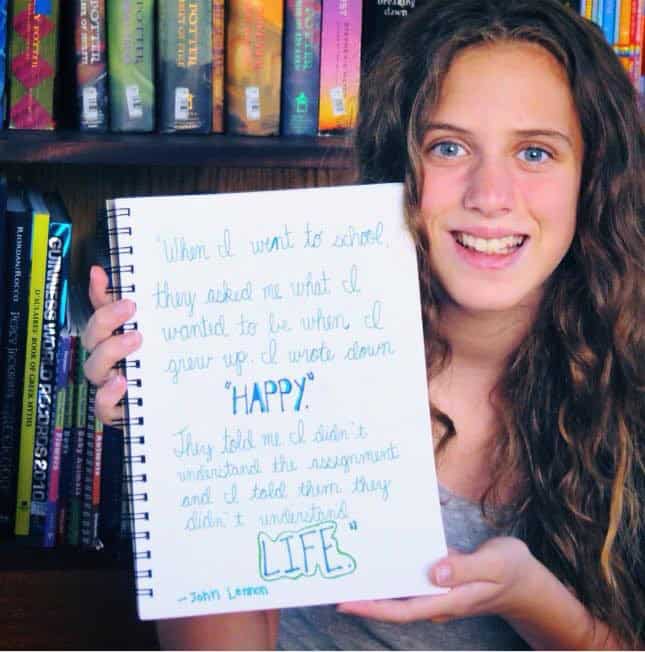 breaking
dawn
POTTER
POTTER
POTTER
GUINNESS WORLD RECORDS 2010
RIORDAN/ROCCO
D'AULAIRES' BOOK OF GREEK MYTHS
"When I went to school,
they asked me what I
wanted to be when I
grew up. I wrote down
"HAPPY."
They told me I didn't
understand the assignment
and I told them they
didn't understand
LIFE."
-John Lennon